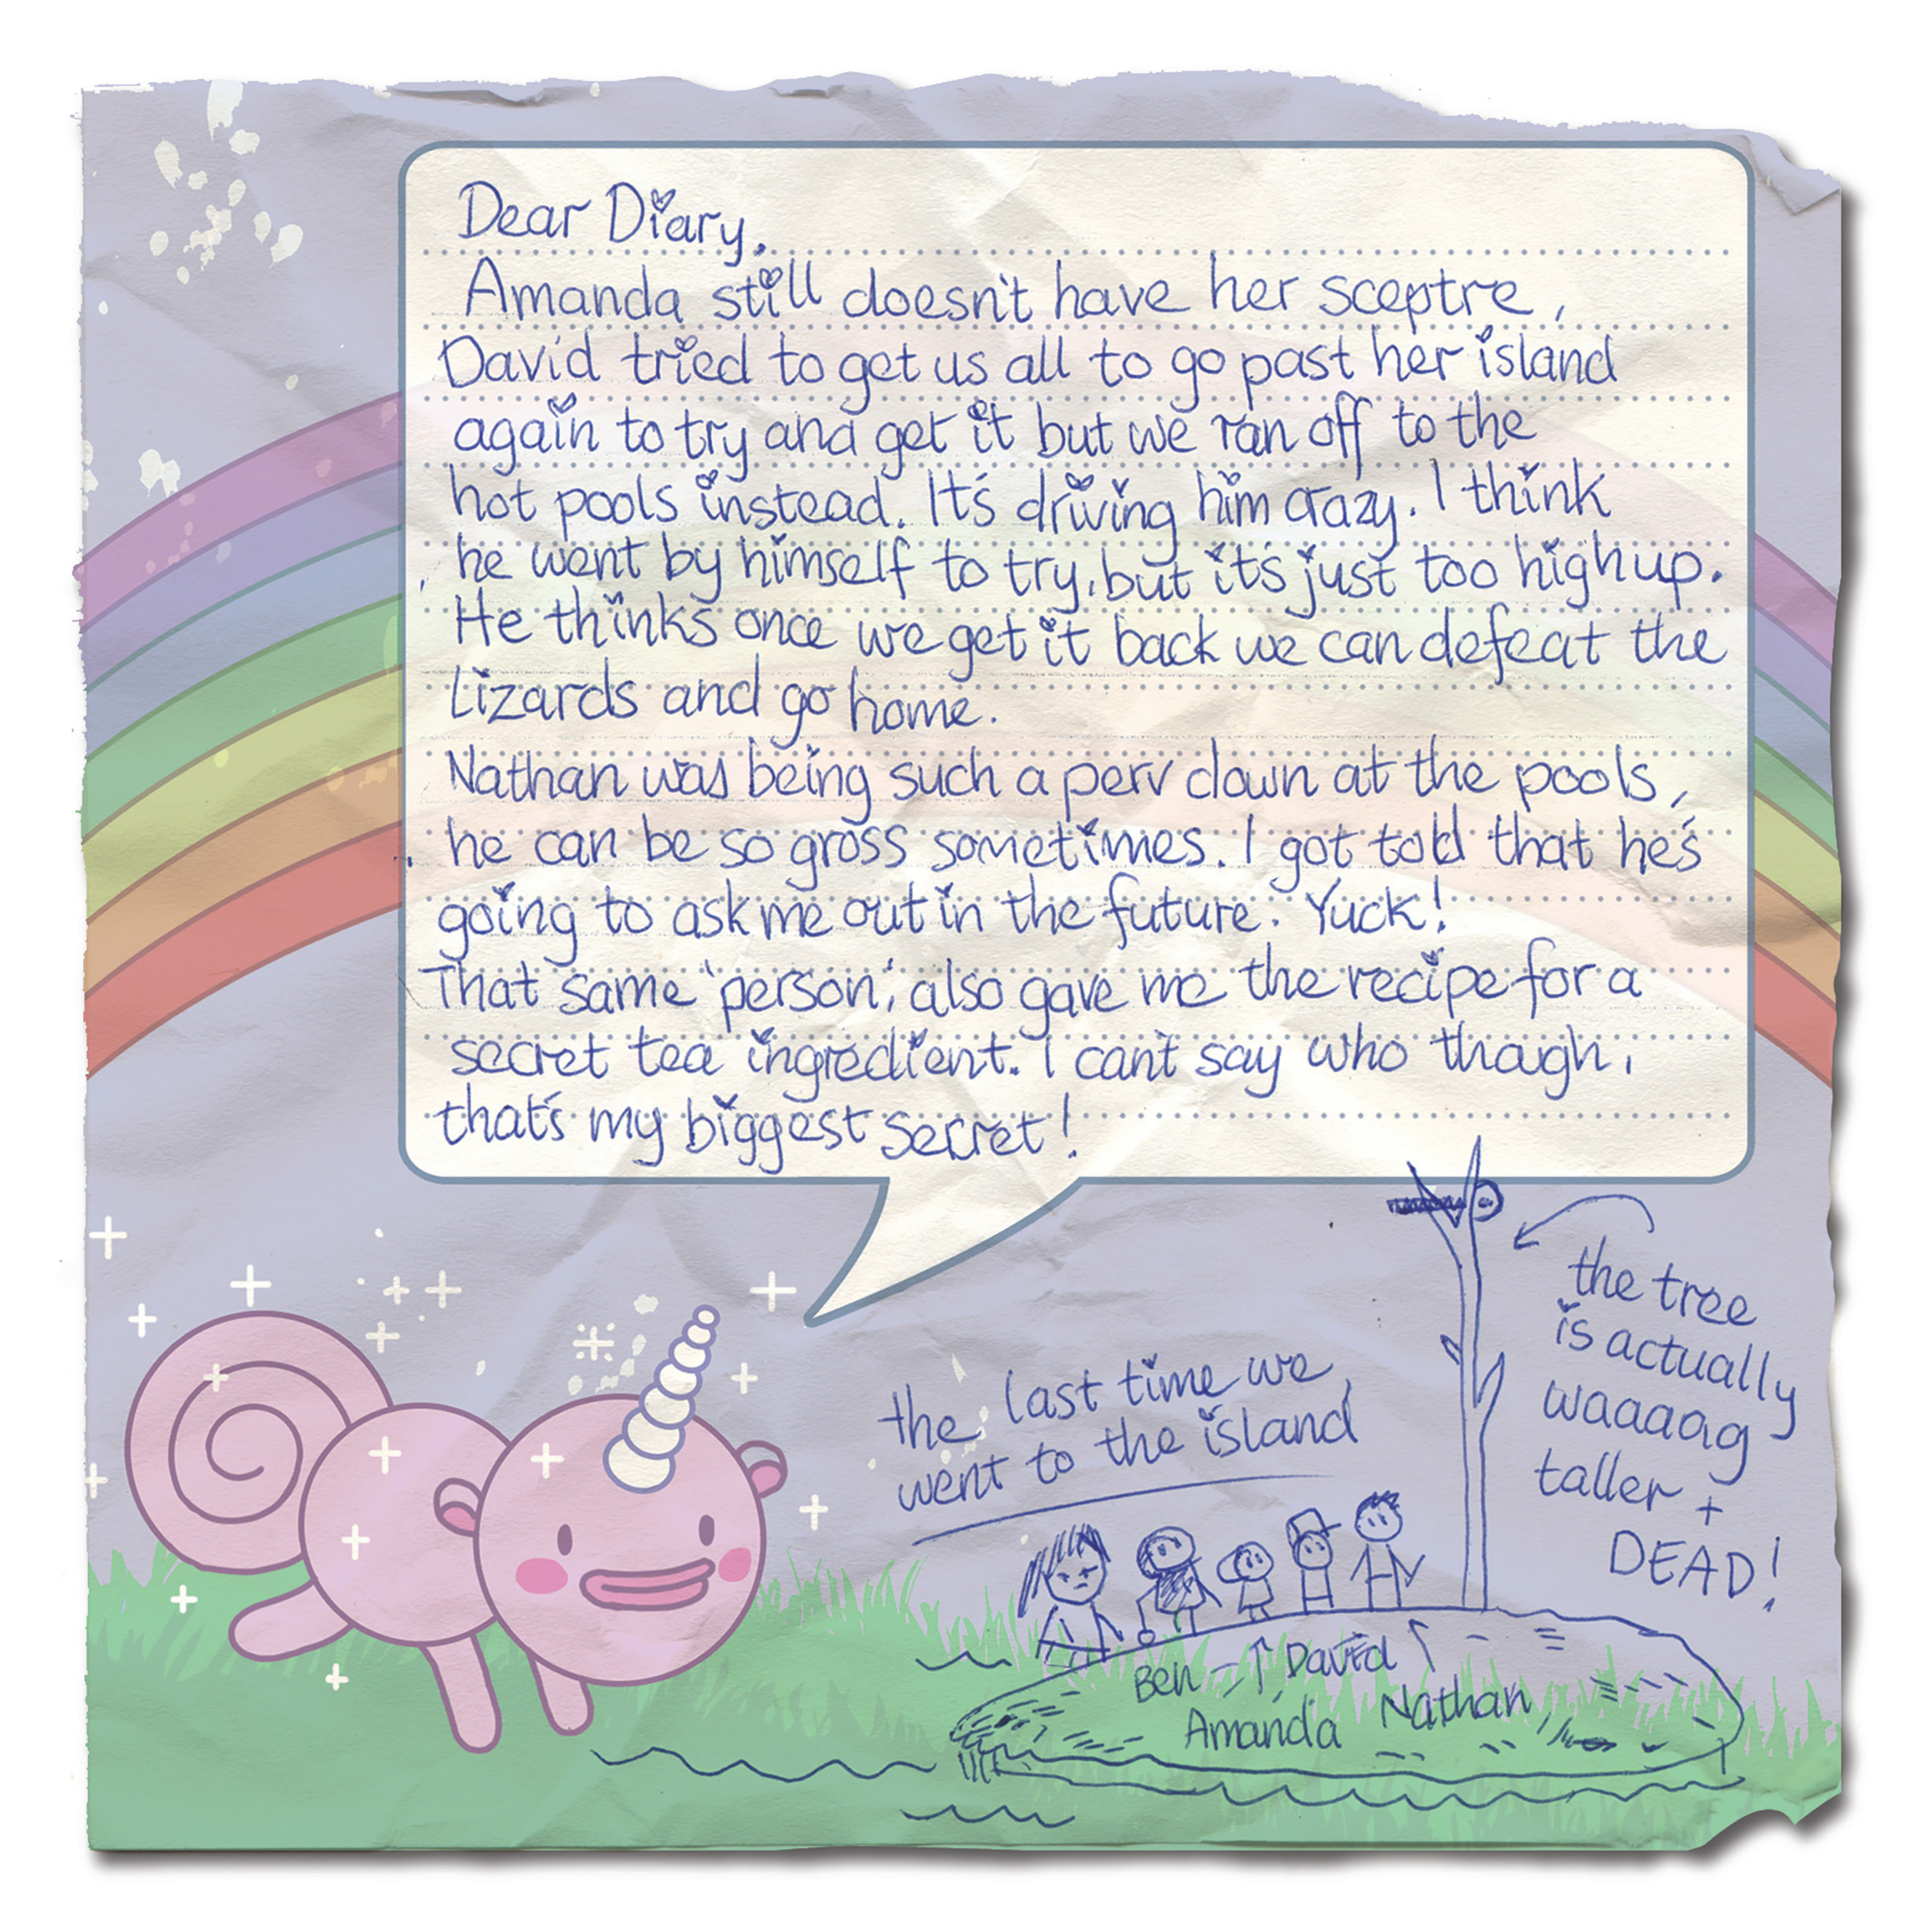 Dear Diary,
Amanda still doesn't have her sceptre,
David tried to get us all to go past her island
again to try and get it but we ran off to the
hot pools instead. It's driving him crazy. I think
he went by himself to try, but it's just too high up.
He thinks once we get it back we can defeat the
Lizards and go home.
Nathan was being such a perv down at the pools,
he can be so gross sometimes. I got told that he's
going to ask me out in the future. Yuck!
That same 'person', also gave me the recipe for a
secret tea ingredient. I can't say who though,
that's my biggest secret!
the tree
is actually
waaaay
taller +
DEAD!
the last time we
went to the island
Ben David
Amanda Nathan